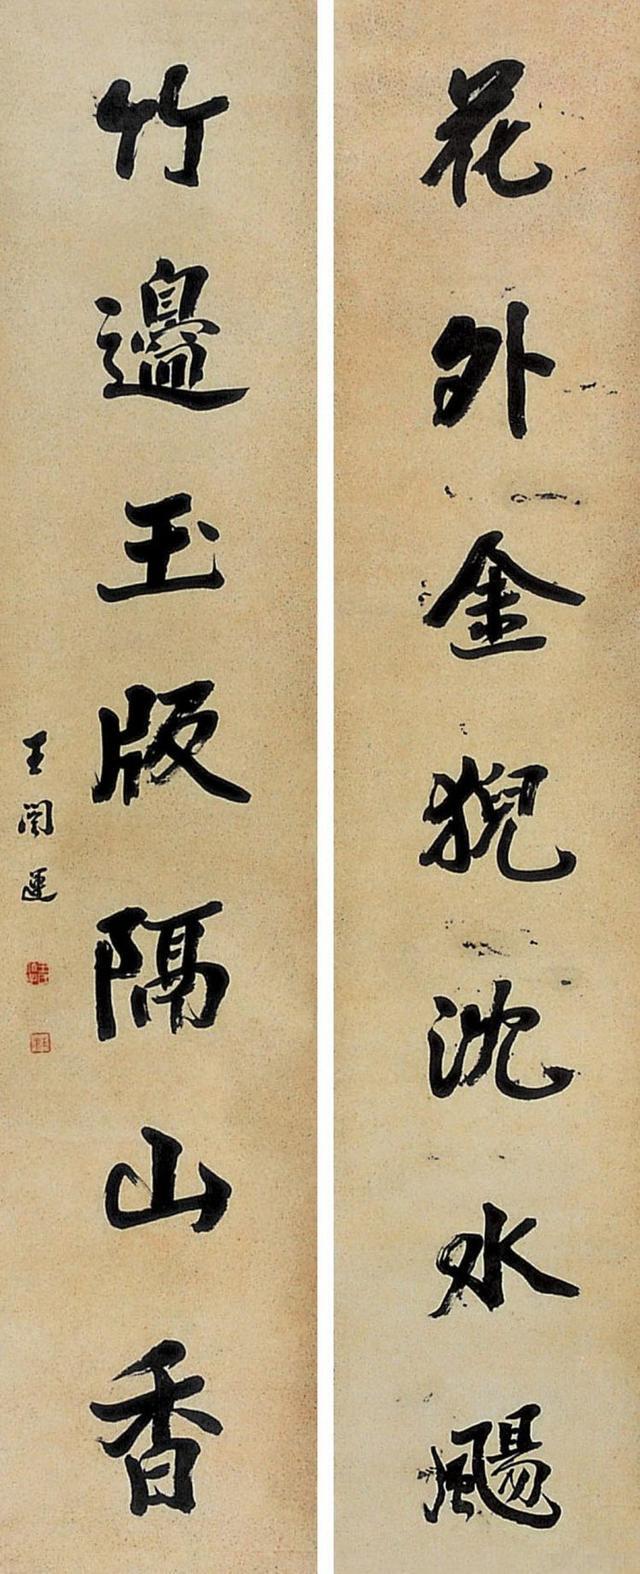 花外金猊沈水颺
竹邊玉版隔山香
王闓運